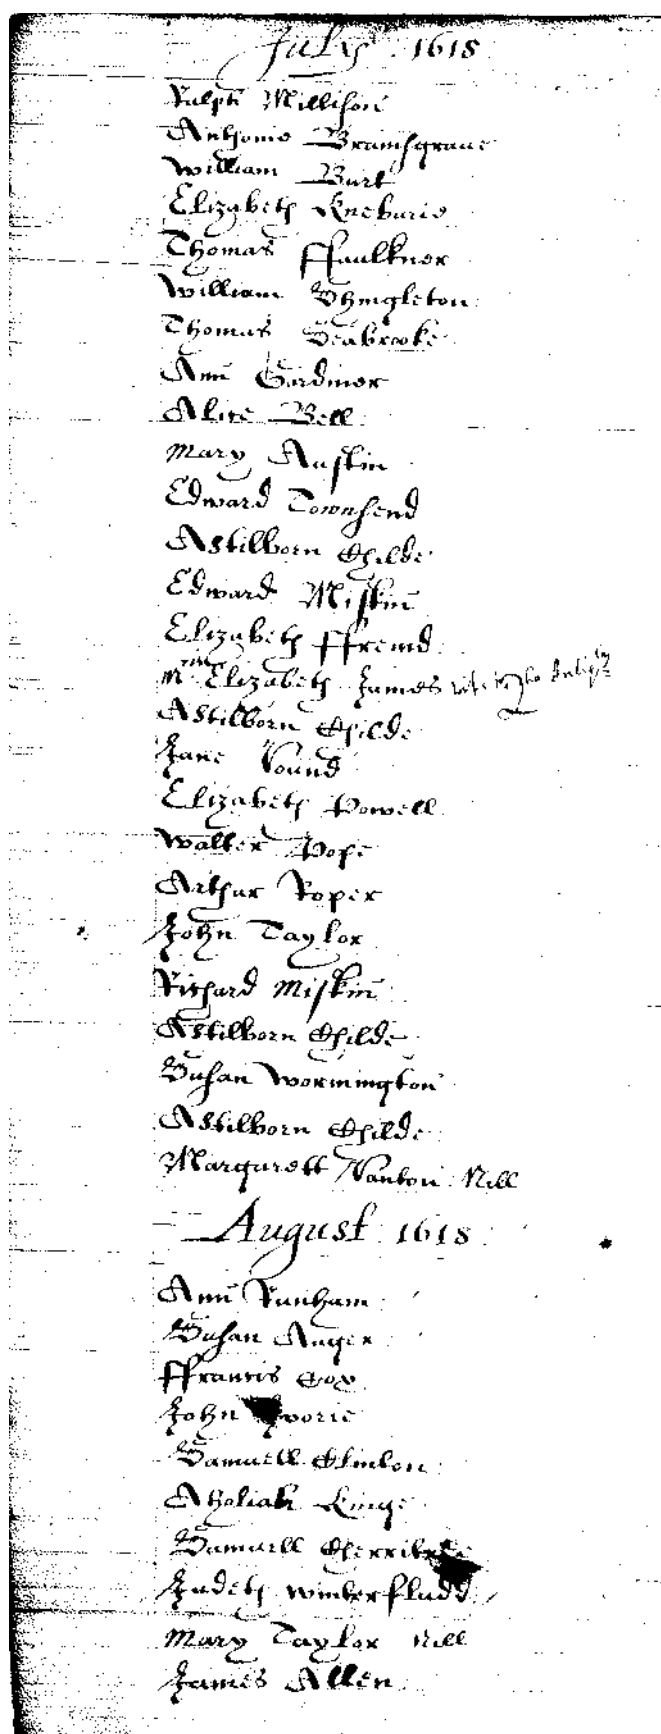 July 1618
Ralph Millison
Anthonie Bramsgraue
William Burt
Elizabeth Kneburie
Thomas ffaulkner
William Shingleton
Thomas Seabrooke
Ann Gardiner
Alice Bell
Mary Austin
Edward Townsend
A Stilborn Childe
Edward Miskin
Elizabeth ffreind
Mrs Elizabeth James
A Stilborn Childe
Jane Pound
Elizabeth Powell
Walter Pope
Arthur Roper
John Taylor
Richard Miskin
A Stilborn Childe
Susan Wormington
A Stilborn Childe
Margarett Nill
August 1618
Ann Ranham
Susan Auger
ffrancis Cox
John
Samuell Clinton
Athaliah Kinge
Samuell
Judeth Winterfludd
Mary Taylor Nill
James Allen